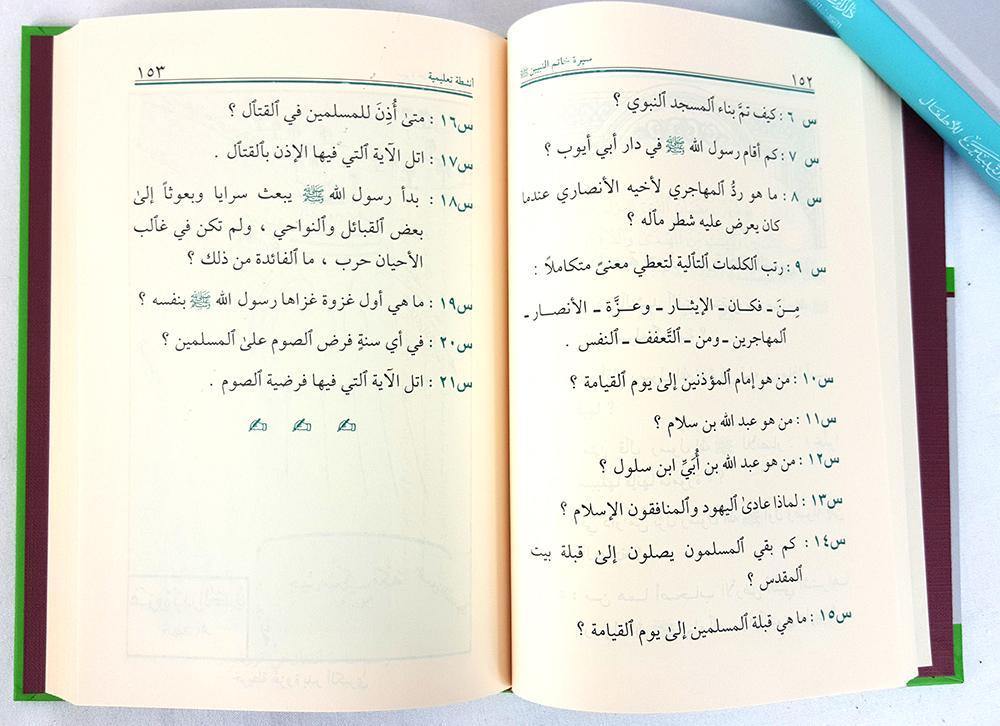 ١٥٢
سيرة خاتم النبيين ﷺ
س ٦ : كيف تمَّ بناء ٱلمسجد ٱلنبوي ؟
س ٧ : كم أقام رسول الله ﷺ في دار أبي أيوب ؟
س ٨ : ما هو ردُّ ٱلمهاجري لأخيه الأنصاري عندما
كان يعرض عليه شطر مٱله ؟
س ٩ : رتب ٱلكلمات ٱلتٱلية لتعطي معنىً متكاملاً :
مِنَ ـ فكان ـ الإيثار ـ وعزَّة ـ الأنصار ـ
ٱلمهاجرين ـ ومن ـ ٱلتَّعفف ـ ٱلنفس .
س١٠ : من هو إمام ٱلمؤذنين إلىٰ يوم ٱلقيامة ؟
س١١ : من هو عبد الله بن سلام ؟
س١٢ : من هو عبد الله بن أُبَيِّ ابن سلول ؟
س١٣ : لماذا عادىٰ ٱليهود وٱلمنافقون الإسلام ؟
س١٤ : كم بقي ٱلمسلمون يصلون إلىٰ قبلة بيت
ٱلمقدس ؟
س١٥ : ما هي قبلة ٱلمسلمين إلىٰ يوم ٱلقيامة ؟
أنشطة تعليمية
١٥٣
س١٦ : متىٰ أُذِنَ للمسلمين في ٱلقتٱل ؟
س١٧ : اتل الآية ٱلتي فيها الإذن بٱلقتٱل .
س١٨ : بدأ رسول الله ﷺ يبعث سرايا وبعوثاً إلىٰ
بعض ٱلقبائل وٱلنواحي ، ولم تكن في غالب
الأحيان حرب ، ما ٱلفائدة من ذلك ؟
س١٩ : ما هي أول غزوة غزاها رسول الله ﷺ بنفسه ؟
س٢٠ : في أي سنةٍ فرض ٱلصوم علىٰ ٱلمسلمين ؟
س٢١ : اتل الآية ٱلتي فيها فرضية ٱلصوم .
للأطفال